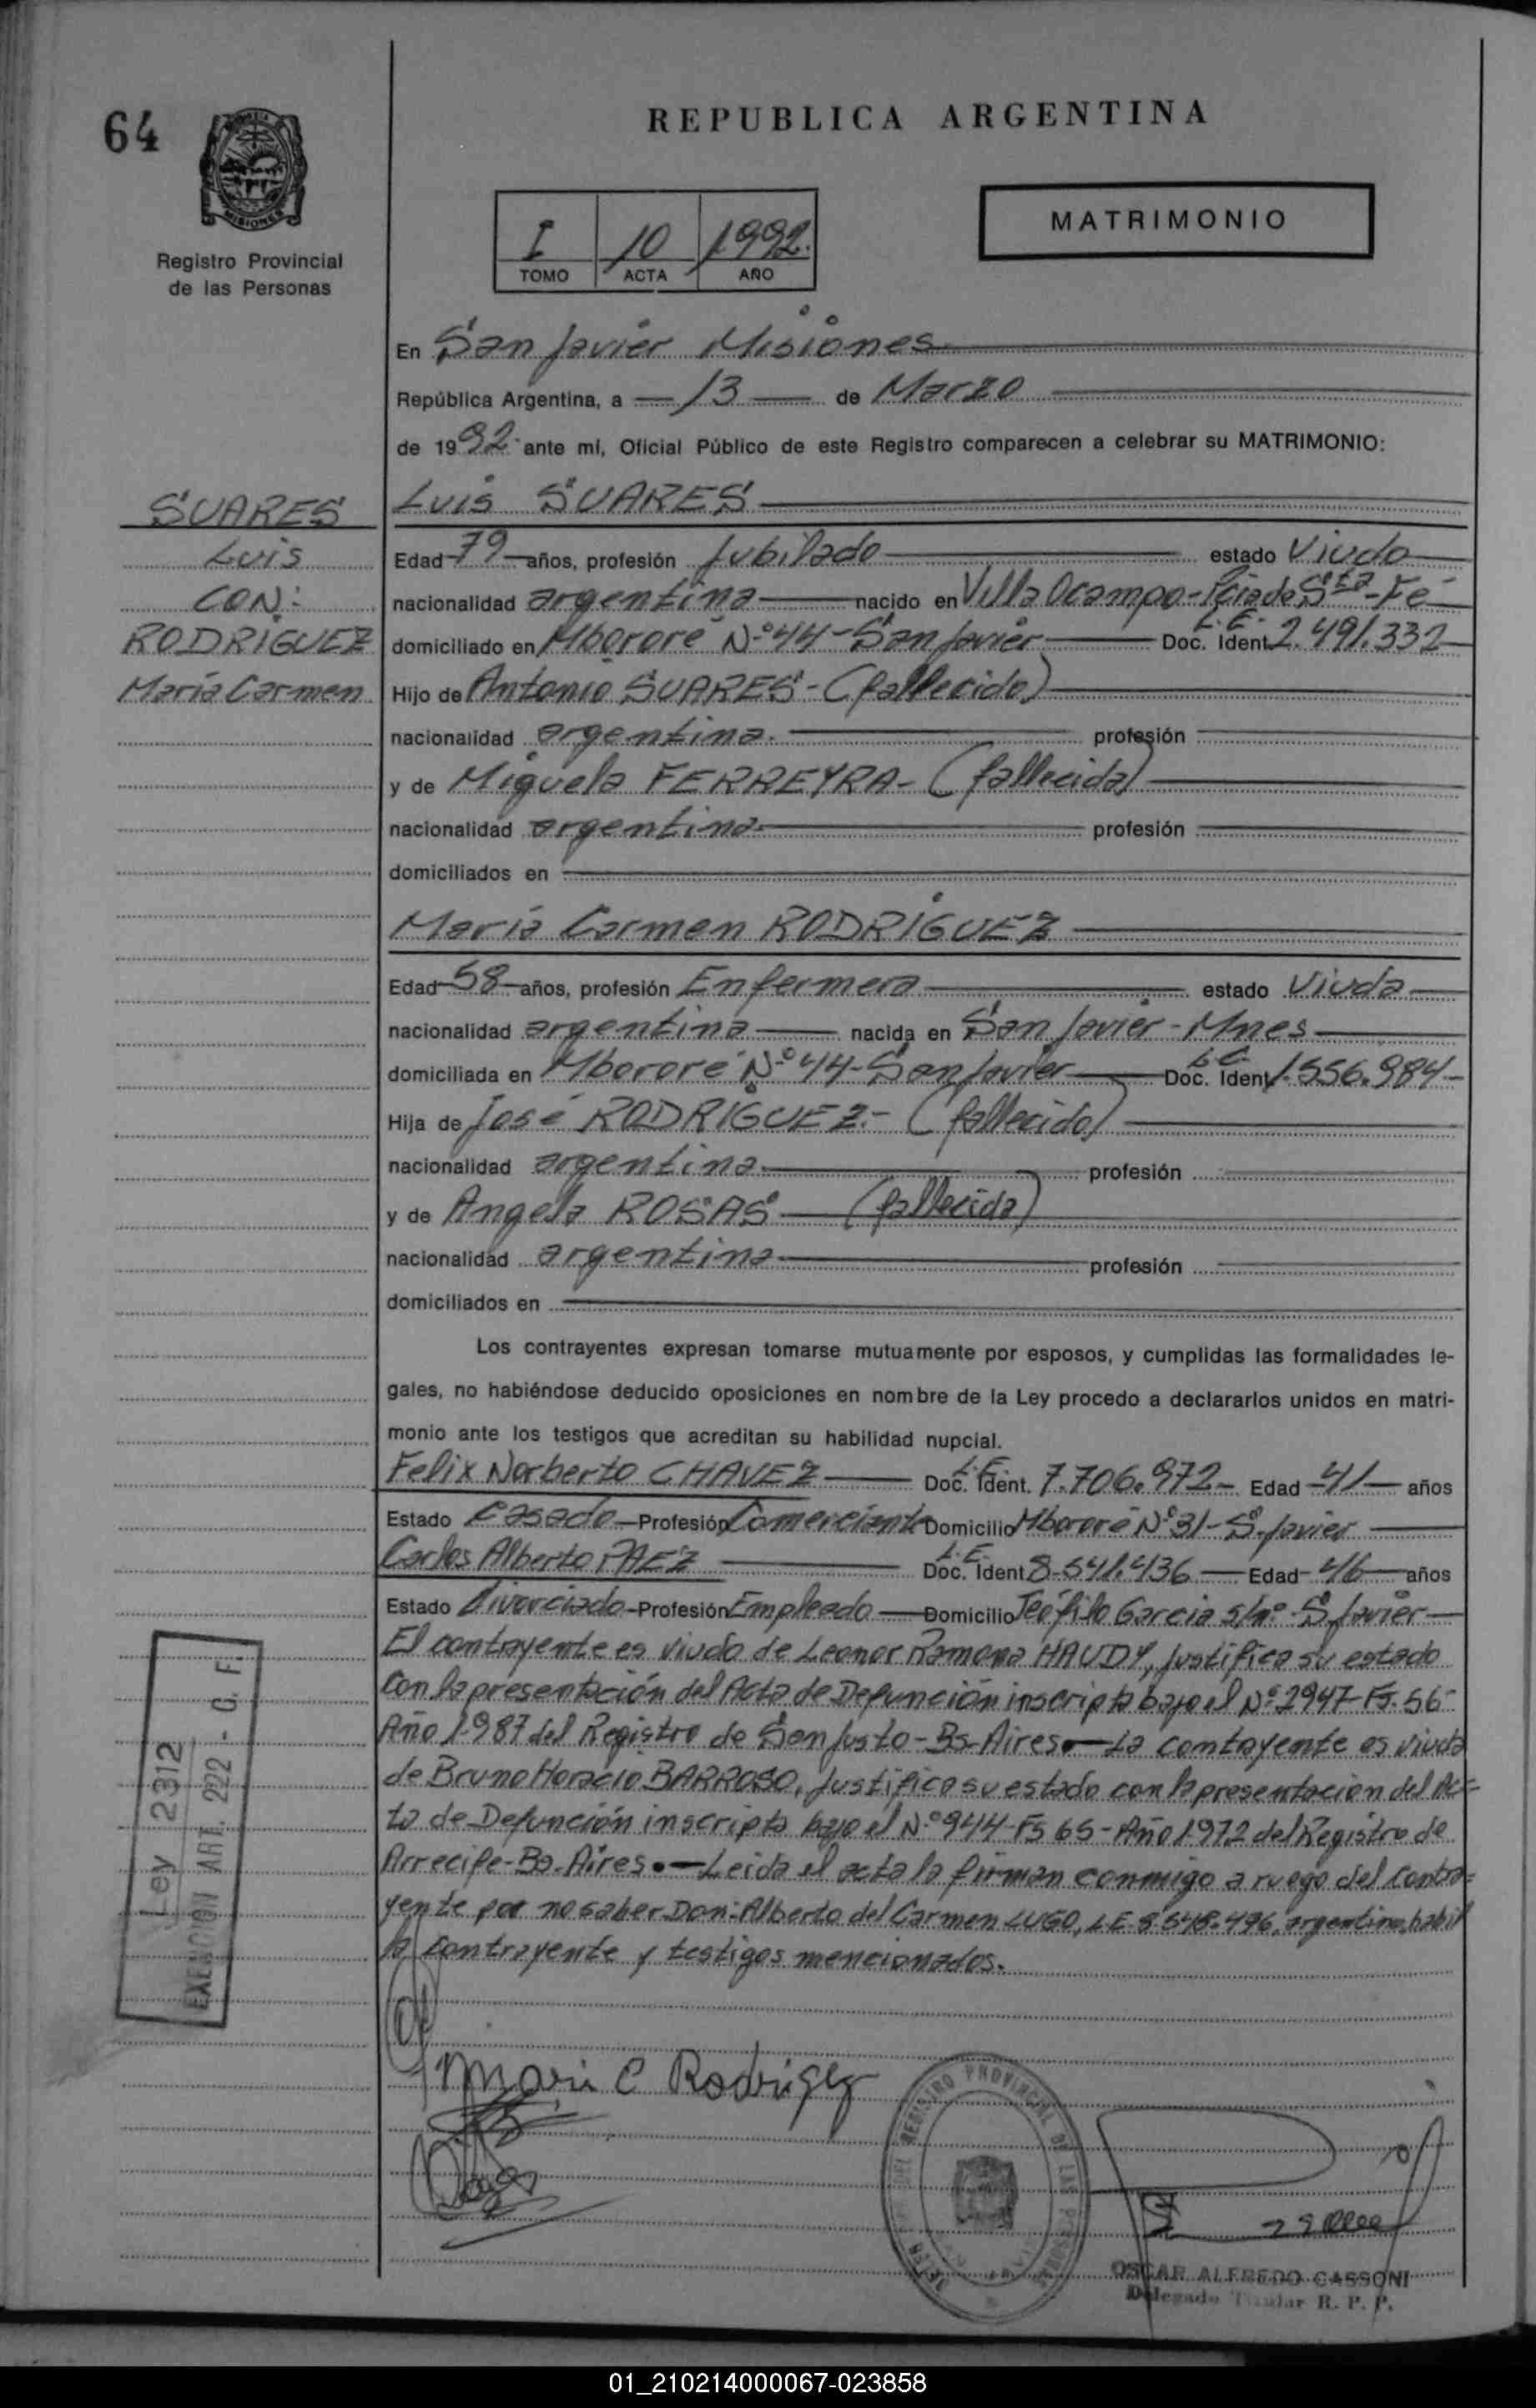 64
REPUBLICA ARGENTINA
MISIONES
Registro Provincial
de las Personas
MATRIMONIO
I 10 1992.
TOMO ACTA AÑO
En San Javier Misiones
República Argentina, a 13 de Marzo
de 1992 ante mí, Oficial Público de este Registro comparecen a celebrar su MATRIMONIO:
SUARES
Luis
CON:
RODRIGUEZ
María Carmen
Luis SUARES
Edad 79 años, profesión Jubilado estado Viudo
nacionalidad argentina nacido en Villa Ocampo-Pcia de Sta-Fe
domiciliado en Mbororé N-º44-San Javier Doc. Ident L.E. 2.491.332
Hijo de Antonio SUARES-(fallecido)
nacionalidad argentina. profesión
y de Miguela FERREYRA-(fallecida)
nacionalidad argentina profesión
domiciliados en
María Carmen RODRIGUEZ
Edad 58 años, profesión Enfermera estado Viuda
nacionalidad argentina nacida en San Javier-Mnes
domiciliada en Mbororé N-º44-San Javier Doc. Ident L.C. 1.556.984
Hija de José RODRIGUEZ.-(fallecido)
nacionalidad argentina profesión
y de Angela ROSAS (fallecida)
nacionalidad argentina profesión
domiciliados en
Los contrayentes expresan tomarse mutuamente por esposos, y cumplidas las formalidades le-
gales, no habiéndose deducido oposiciones en nombre de la Ley procedo a declararlos unidos en matri-
monio ante los testigos que acreditan su habilidad nupcial.
Felix Norberto CHAVEZ Doc. Ident. L.E. 7.706.972- Edad 41 años
Estado Casado Profesión Comerciante Domicilio Mbororé Nº31-S.Javier
Carlos Alberto PAEZ Doc. Ident L.E. 8.541.436 Edad 46 años
Estado Divorciado-Profesión Empleado Domicilio Teófilo Garcia s/nº-S.Javier
El contrayente es viudo de Leonor Ramona HAUDY, Justifica su estado
con la presentación del Acta de Defunción inscripta bajo el Nº2947-Fs.56-
Año 1.987 del Registro de San Justo-Bs-Aires.-La contayente es viuda
de Bruno Horacio BARROSO, Justifica su estado con la presentacion del Ac=
ta de Defunción inscripta bajo el N.º944-Fs 65-Año 1972 del Registro de
Arrecife-Bs.Aires.-Leida el acta la firman conmigo a ruego del contra=
yente por no saber Don:Alberto del Carmen LUGO, L.E. 8.548.496, argentino, habil
la contrayente y testigos mencionados.
Ley 2312
EXENCION ART. 222 - C. F.
Mari C Rodrigez
REGISTRO PROVINCIAL DE LAS PERSONAS
OSCAR ALFREDO CASSONI
Delegado Titular R. P. P.
01_210214000067-023858